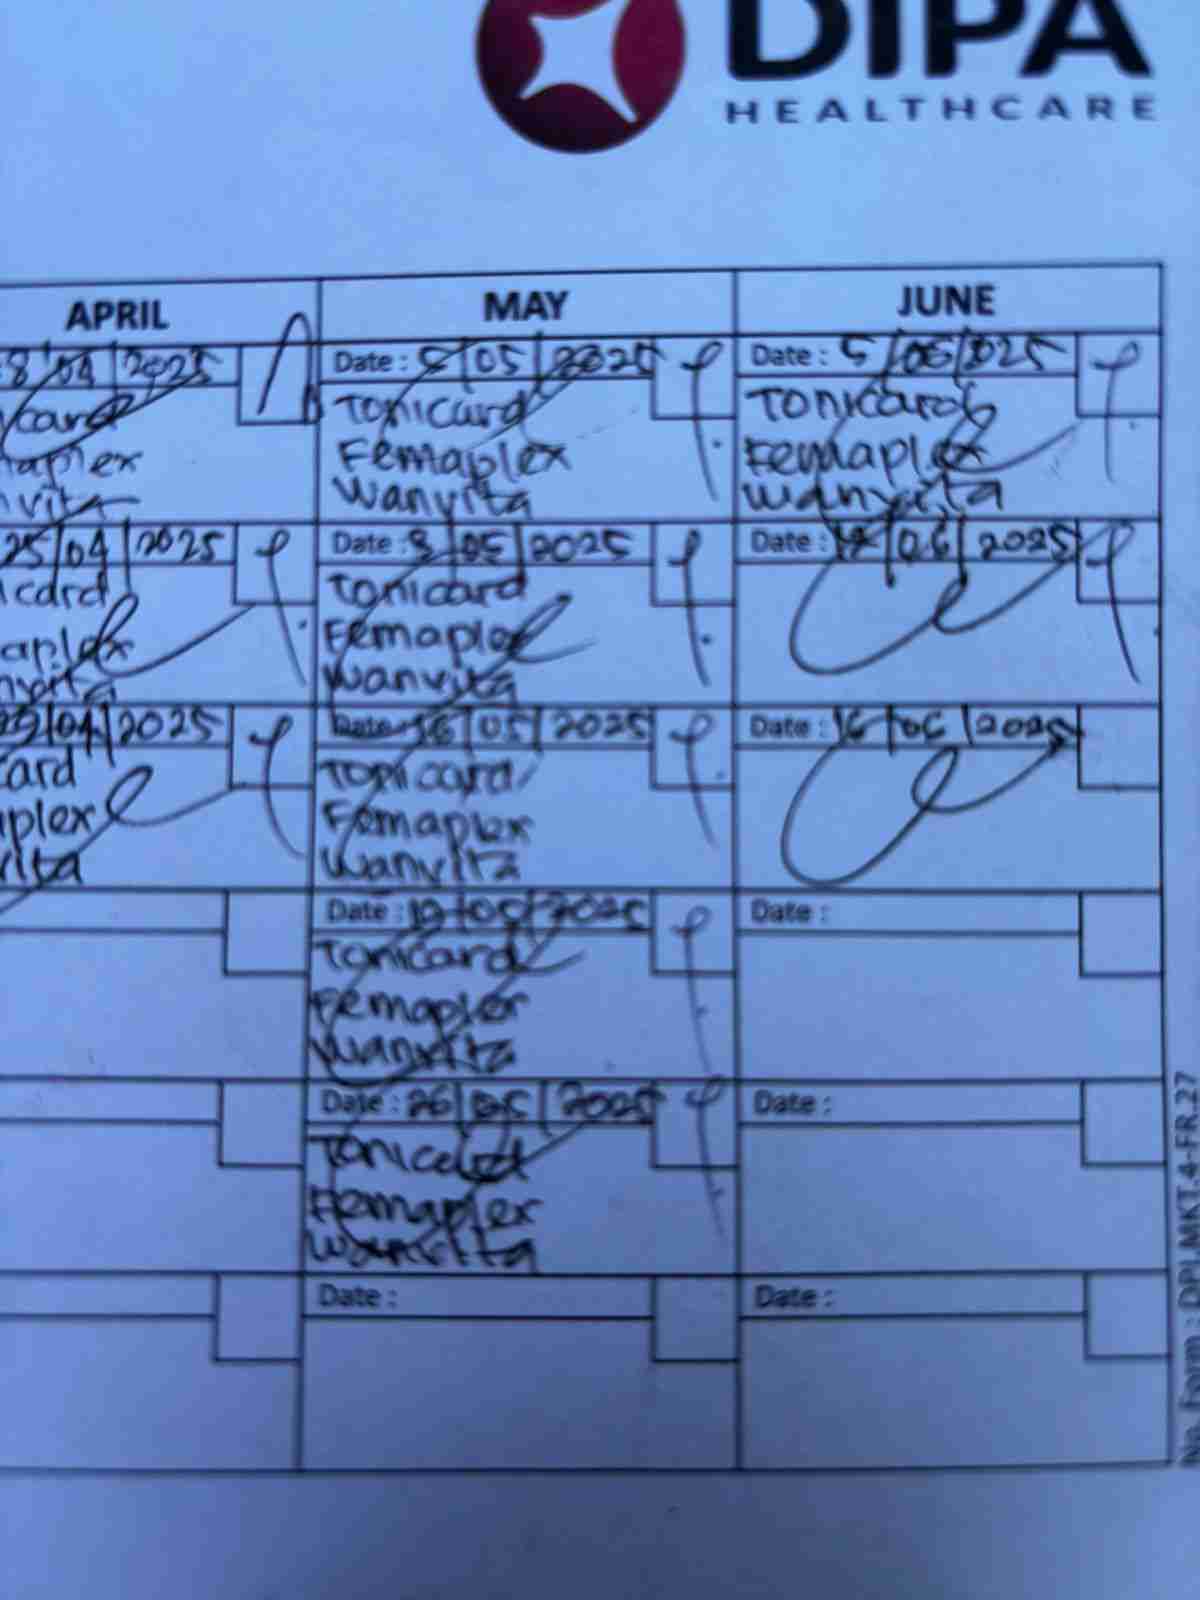 DIPA
HEALTHCARE
APRIL MAY JUNE
8/04/2025 Date : 5/05/2025 Date : 5/06/2025
icard Tonicard Tonicard
maplex Femaplex Femaplex
nvita Wanvita Wanvita
25/04/2025 Date : 8/05/2025 Date : 12/06/2025
icard Tonicard
aplex Femaplex
nvita Wanvita
29/04/2025 Date : 16/05/2025 Date : 16/06/2025
card Tonicard
aplex Femaplex
vita Wanvita
Date : 19/05/2025 Date :
Tonicard
Femaplex
Wanvita
Date : 26/05/2025 Date :
Tonicard
Femaplex
Wanvita
Date : Date :
No. Form : DPI-MKT.4-FR.27